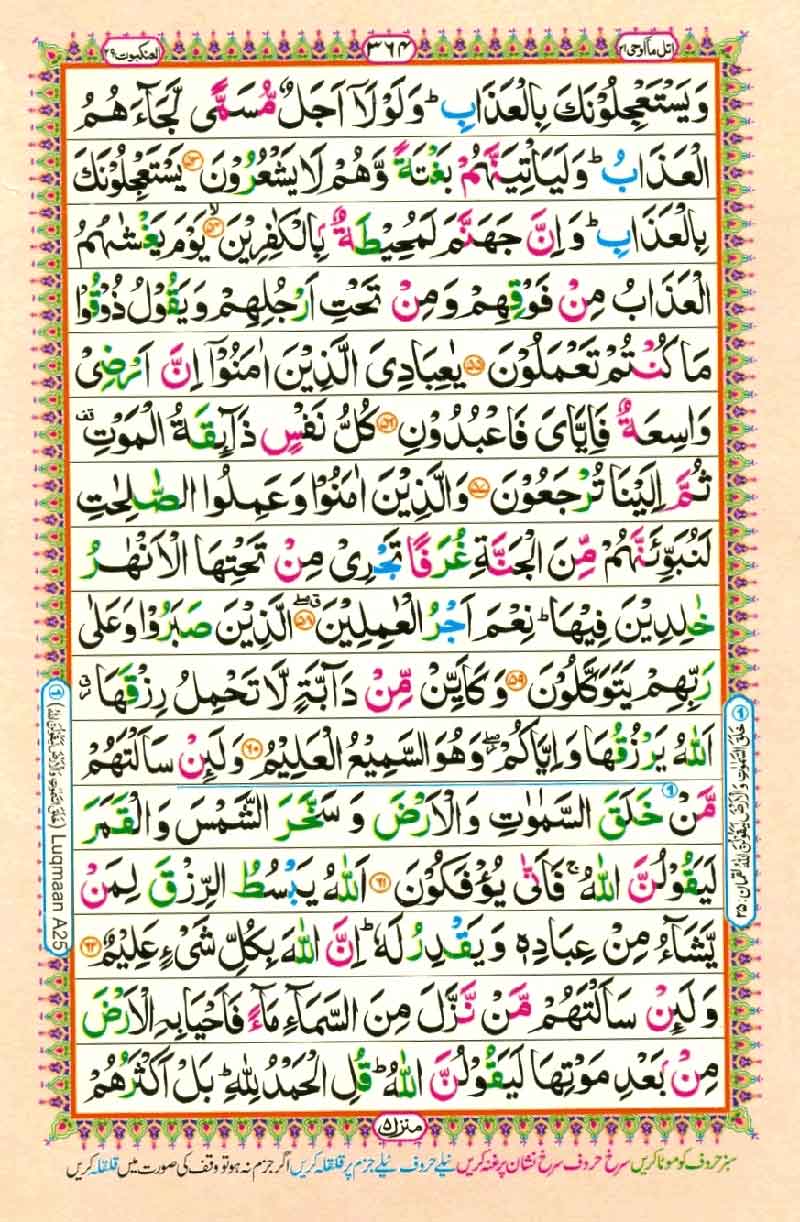 اتل ما اوحی ۲۱
۳۶۴
العنکبوت ۲۹
وَيَسْتَعْجِلُوْنَكَ بِالْعَذَابِ ؕ وَلَوْلَاۤ اَجَلٌ مُّسَمًّى لَّجَآءَهُمُ
الْعَذَابُ ؕ وَلَيَاْتِيَنَّهُمْ بَغْتَةً وَّهُمْ لَا يَشْعُرُوْنَ ۵۳ يَسْتَعْجِلُوْنَكَ
بِالْعَذَابِ ؕ وَاِنَّ جَهَنَّمَ لَمُحِيْطَةٌۢ بِالْكٰفِرِيْنَ ۙ۵۴ يَوْمَ يَغْشٰىهُمُ
الْعَذَابُ مِنْ فَوْقِهِمْ وَمِنْ تَحْتِ اَرْجُلِهِمْ وَيَقُوْلُ ذُوْقُوْا
مَا كُنْتُمْ تَعْمَلُوْنَ ۵۵ يٰعِبَادِىَ الَّذِيْنَ اٰمَنُوْۤا اِنَّ اَرْضِىْ
وَاسِعَةٌ فَاِيَّاىَ فَاعْبُدُوْنِ ۵۶ كُلُّ نَفْسٍ ذَآئِقَةُ الْمَوْتِ قف
ثُمَّ اِلَيْنَا تُرْجَعُوْنَ ۵۷ وَالَّذِيْنَ اٰمَنُوْا وَعَمِلُوا الصّٰلِحٰتِ
لَنُبَوِّئَنَّهُمْ مِّنَ الْجَنَّةِ غُرَفًا تَجْرِىْ مِنْ تَحْتِهَا الْاَنْهٰرُ
خٰلِدِيْنَ فِيْهَا ؕ نِعْمَ اَجْرُ الْعٰمِلِيْنَ ۵۸ الَّذِيْنَ صَبَرُوْا وَعَلٰى
رَبِّهِمْ يَتَوَكَّلُوْنَ ۵۹ وَكَاَيِّنْ مِّنْ دَآبَّةٍ لَّا تَحْمِلُ رِزْقَهَا
اَللّٰهُ يَرْزُقُهَا وَاِيَّاكُمْ وَهُوَ السَّمِيْعُ الْعَلِيْمُ ۶۰ وَلَئِنْ سَاَلْتَهُمْ
مَّنْ خَلَقَ السَّمٰوٰتِ وَالْاَرْضَ وَسَخَّرَ الشَّمْسَ وَالْقَمَرَ
لَيَقُوْلُنَّ اللّٰهُ ۚ فَاَنّٰى يُؤْفَكُوْنَ ۶۱ اَللّٰهُ يَبْسُطُ الرِّزْقَ لِمَنْ
يَّشَآءُ مِنْ عِبَادِهٖ وَيَقْدِرُ لَهٗ ؕ اِنَّ اللّٰهَ بِكُلِّ شَىْءٍ عَلِيْمٌ ۶۲
وَلَئِنْ سَاَلْتَهُمْ مَّنْ نَّزَّلَ مِنَ السَّمَآءِ مَآءً فَاَحْيَا بِهِ الْاَرْضَ
مِنْۢ بَعْدِ مَوْتِهَا لَيَقُوْلُنَّ اللّٰهُ ؕ قُلِ الْحَمْدُ لِلّٰهِ ؕ بَلْ اَكْثَرُهُمْ
① خَلَقَ السَّمٰوٰتِ وَالْاَرْضَ لَيَقُوْلُنَّ اللّٰهُ لقمان: ۲۵
Luqmaan A25
منزل ۵
سبز حروف کو موٹا کریں سرخ حروف سرخ نشان پر غنہ کریں نیلے حروف نیلے جزم پر قلقلہ کریں اگر جزم نہ ہو تو وقف کی صورت میں قلقلہ کریں